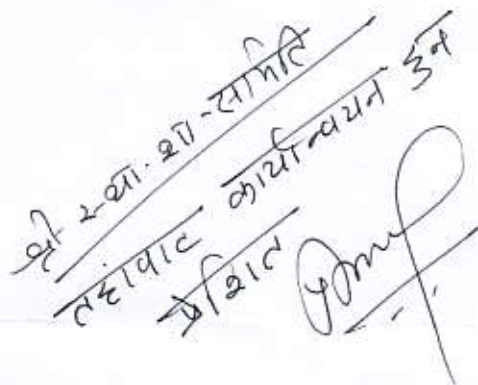 श्री स्था. शा. समिति
तहांवाट कार्यान्वयन हेतु
प्रेषित